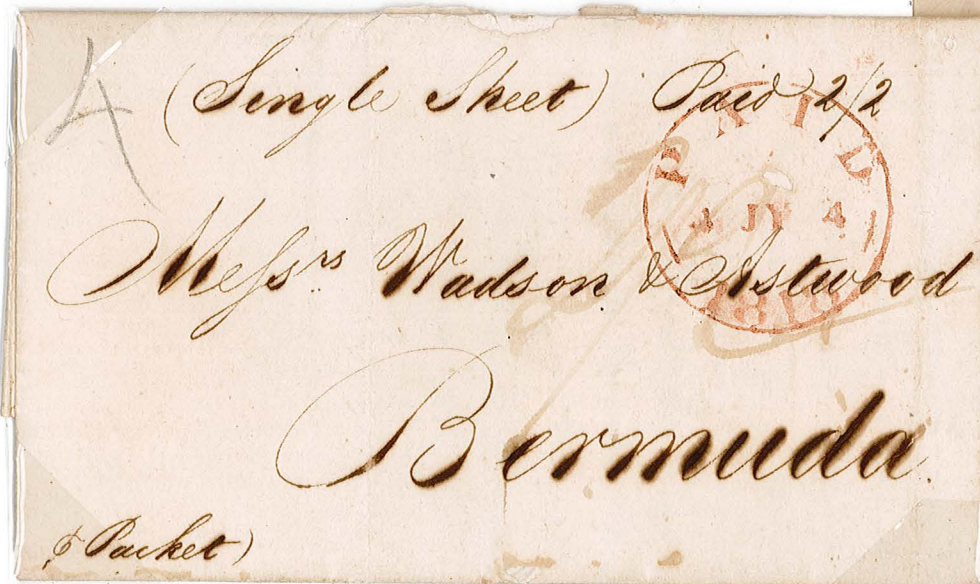 (Single Sheet) Paid 2/2
PAID
4 JY 4
Messrs Wadson & Astwood
Bermuda.
Packet)